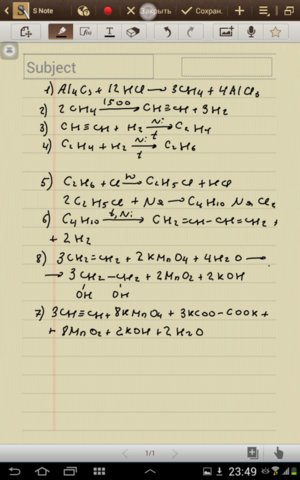 S Note
Закрыть
Сохран.
Subject
1) Al4C3 + 12HCl → 3CH4 + 4AlCl3
2) 2CH4 1500→ CH≡CH + 3H2
3) CH≡CH + H2 Ni→t C2H4
4) C2H4 + H2 Ni→t C2H6
5) C2H6 + Cl hv→ C2H5Cl + HCl
2C2H5Cl + Na → C4H10 NaCl2
6) C4H10 t,Ni→ CH2=CH-CH=CH2 +
+ 2H2
8) 3CH2=CH2 + 2KMnO4 + 4H2O →
→ 3CH2-CH2 + 2MnO2 + 2KOH
OH OH
7) 3CH≡CH + 8KMnO4 → 3KCOO-COOK +
+ 8MnO2 + 2KOH + 2H2O
1/1
23:49